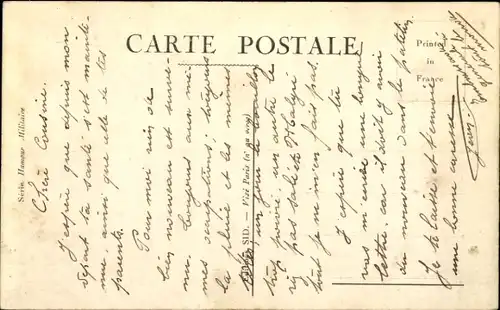 CARTE POSTALE
Printed
in
France
Série Humour Militaire
SID. — Visé Paris (n° au verso)
Chère Cousine.
J'espère que depuis mon
départ ta santé s'est mainte-
nue, ainsi que celle de tes
parents.
Pour moi rien de
bien nouveau est surve-
nu. Toujours aux mê-
mes occupations, toujours
la pluie et les mêmes
un jour le
trop pourri. un autre le
pas sale. Malgré
tout je ne m'en fais pas.
J'espère que tu
vas m'écrire une longue
lettre. car il doit y avoir
du nouveau dans le patelin
Je te laisse et t'envoie
une bonne caresse